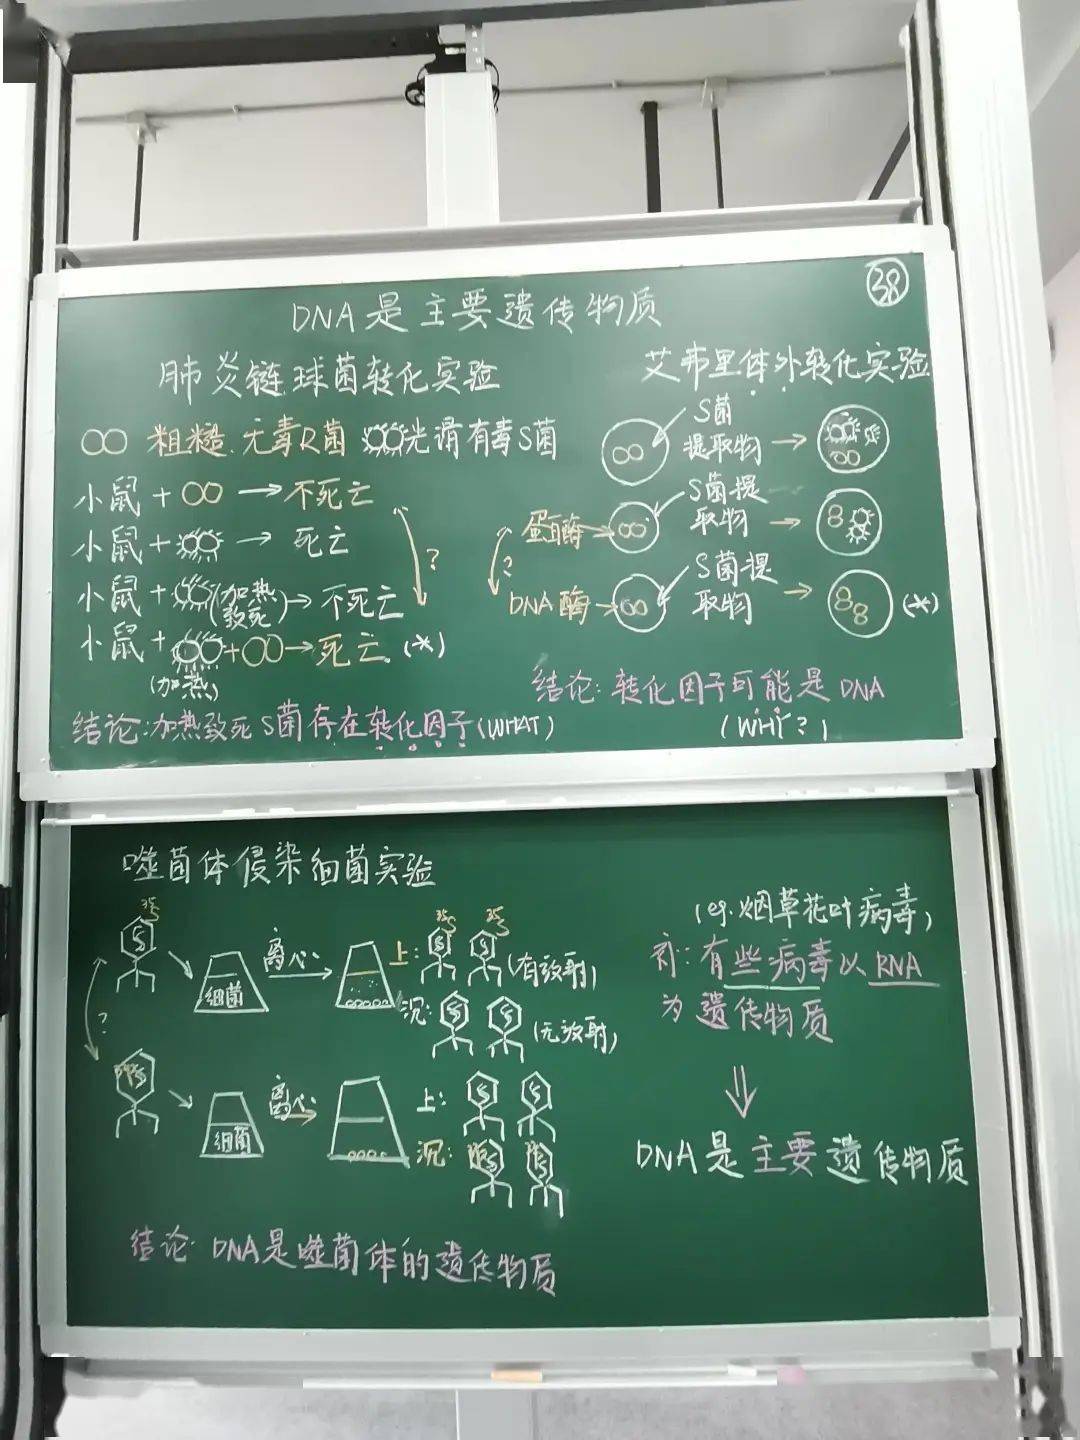 38
DNA是主要遗传物质
肺炎链球菌转化实验
粗糙.无毒R菌 光滑有毒S菌
小鼠+ → 不死亡
小鼠+ → 死亡
小鼠+ (加热致死) → 不死亡
小鼠+ + → 死亡. (*)
(加热)
?
结论:加热致死S菌存在转化因子(WHAT)
艾弗里体外转化实验
S菌
提取物 →
蛋白酶→ S菌提
取物 →
?
DNA酶→ S菌提
取物 → (*)
结论:转化因子可能是DNA
(WHY?)
噬菌体侵染细菌实验
35S 细菌 离心 上: 35S 35S (有放射)
沉: (无放射)
?
32P 细菌 离心 上:
沉: 32P 32P
结论:DNA是噬菌体的遗传物质
(eg.烟草花叶病毒)
补:有些病毒以RNA
为遗传物质
⇓
DNA是主要遗传物质